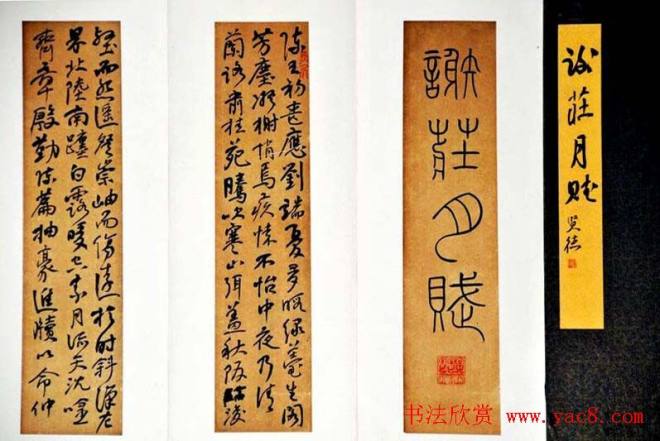 谢莊月赋
謝莊月賦
陈王初丧應劉端憂多暇緑苔生阁
芳塵凝榭悄焉疚懷不怡中夜乃清
蘭路肅桂苑騰吹寒山弭蓋秋阪臨浚
壑而怨遥登崇岫而傷遠於時斜漢左
界北陸南躔白露暧空素月流天沈吟
齊章殷勤陈篇抽豪進牘以命仲
书法欣赏 www.yac8.com